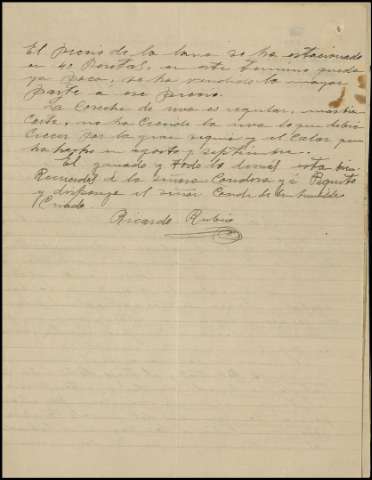 El precio de la lana se ha estacionado
en 40 Pesetas, en este termino queda
ya poca, se ha vendido la mayor
parte a ese precio.
La Cosecha de uva es regular,
corta, no ha Crecido la uva lo que debio
Crecer por la gran sequia y el Calor que
ha hecho en agosto y septiembre.
El ganado y todo lo demas esta bien
Recuerdos a la señora Condesa y á Pepito
y disponga el señor Conde de su humilde
Criado
Ricardo Rubio